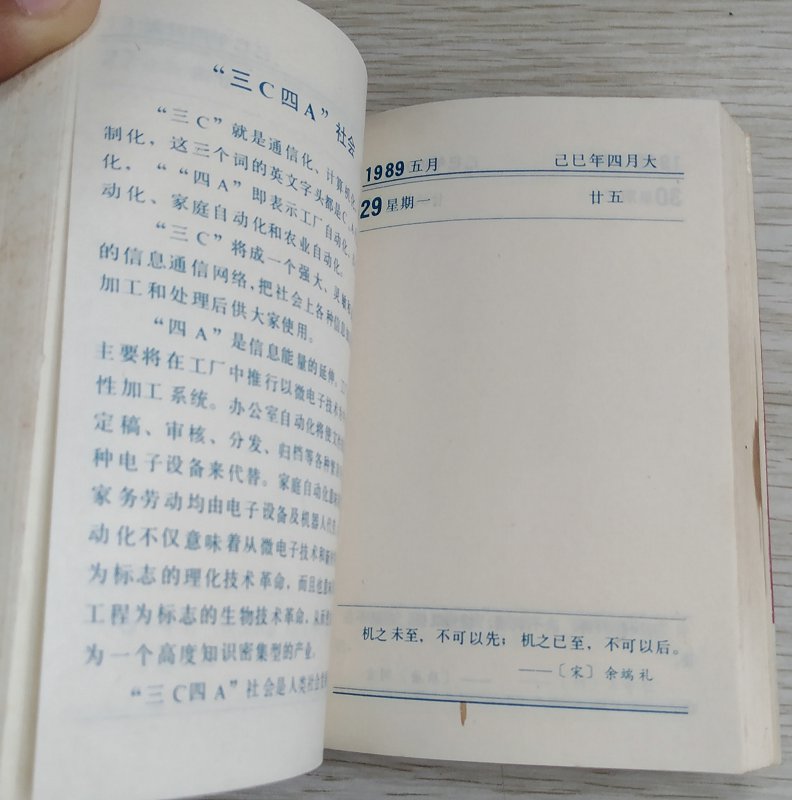 “三C四A”社会
“三C”就是通信化、计算机化
制化，这三个词的英文字头都是C，
化，““四A”即表示工厂自动化、
动化、家庭自动化和农业自动化。
“三C”将成一个强大、灵敏
的信息通信网络，把社会上各种信息
加工和处理后供大家使用。
“四A”是信息能量的延伸。
主要将在工厂中推行以微电子技术
性加工系统。办公室自动化将使文
定稿、审核、分发、归档等各种
种电子设备来代替。家庭自动化意
家务劳动均由电子设备及机器人代
动化不仅意味着从微电子技术和
为标志的理化技术革命，而且也意
工程为标志的生物技术革命，从而
为一个高度知识密集型的产业。
“三C四A”社会是人类社会
1989 五月 己巳年四月大
29 星期一 廿五
机之未至，不可以先；机之已至，不可以后。
——〔宋〕余端礼